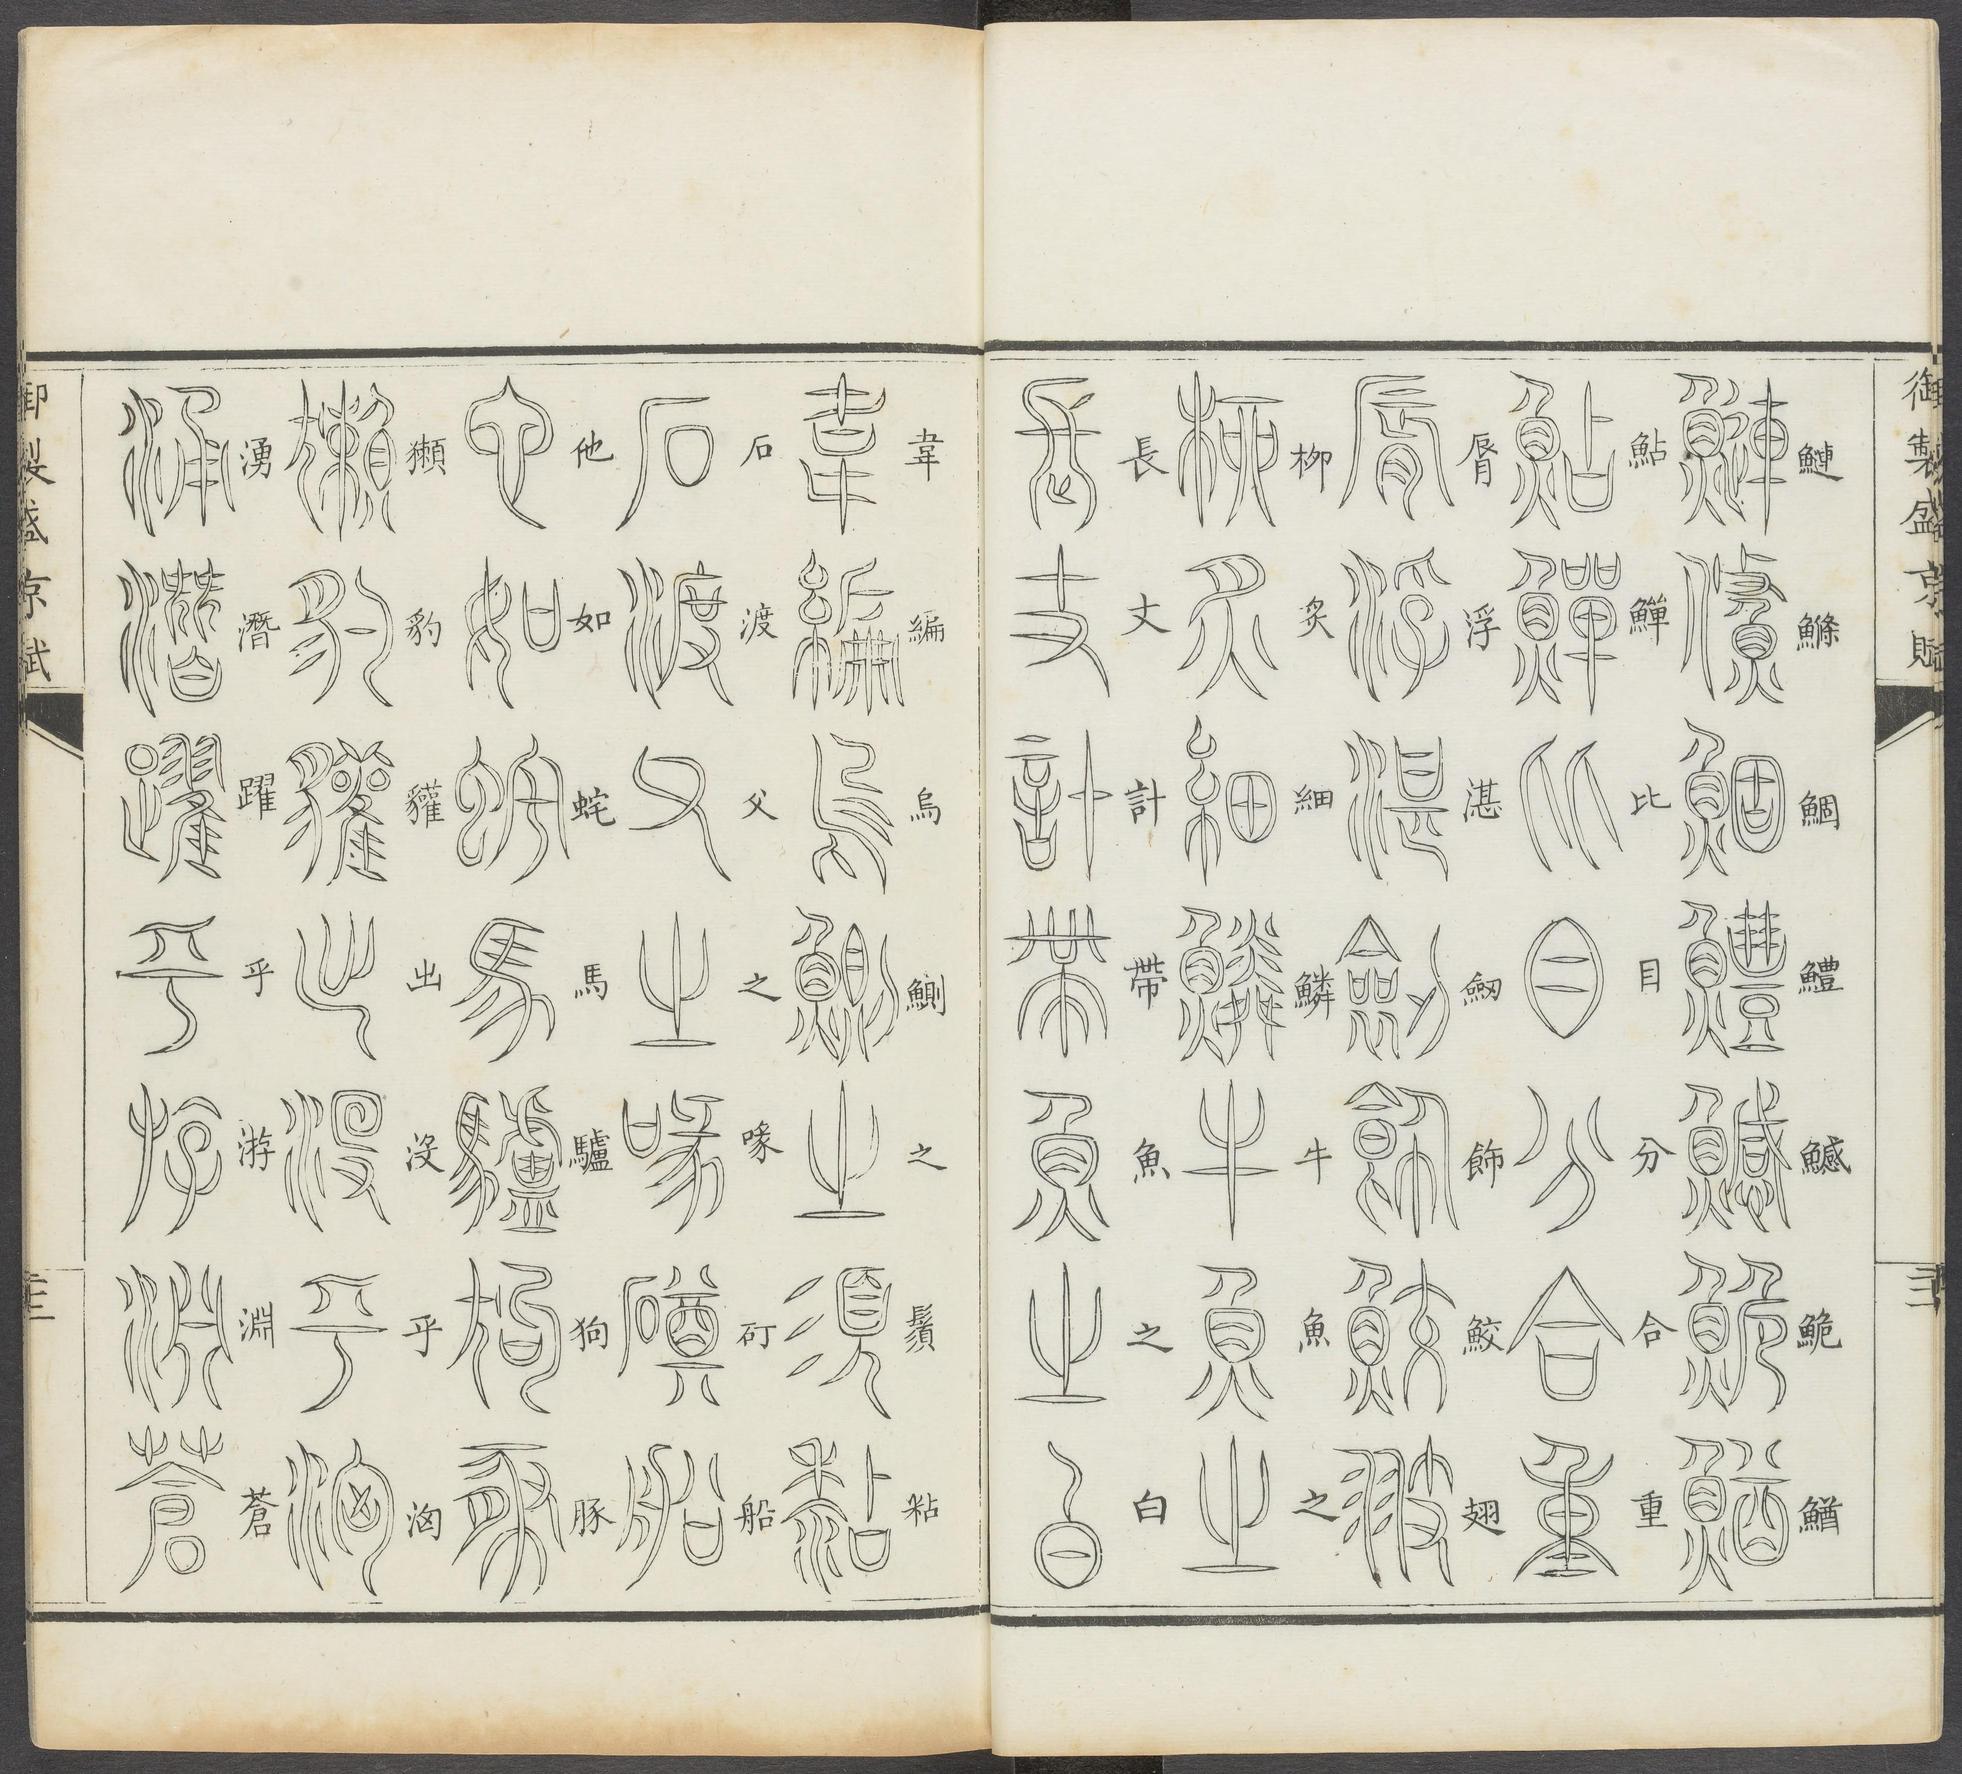 御製盛京賦
鰱鰷鯝鱧鱤鮠鰌
鮎鱓比目分合重
脣浮湛劒飾鮫翅
柳炙細鱗牛魚之
長丈計帶魚之白
韋編烏鰂之鬚粘
石渡父之喙矴船
他如蛇馬驢狗豚
獺豹貛出沒乎洶
湧潛躍乎游淵蒼
御製盛京賦